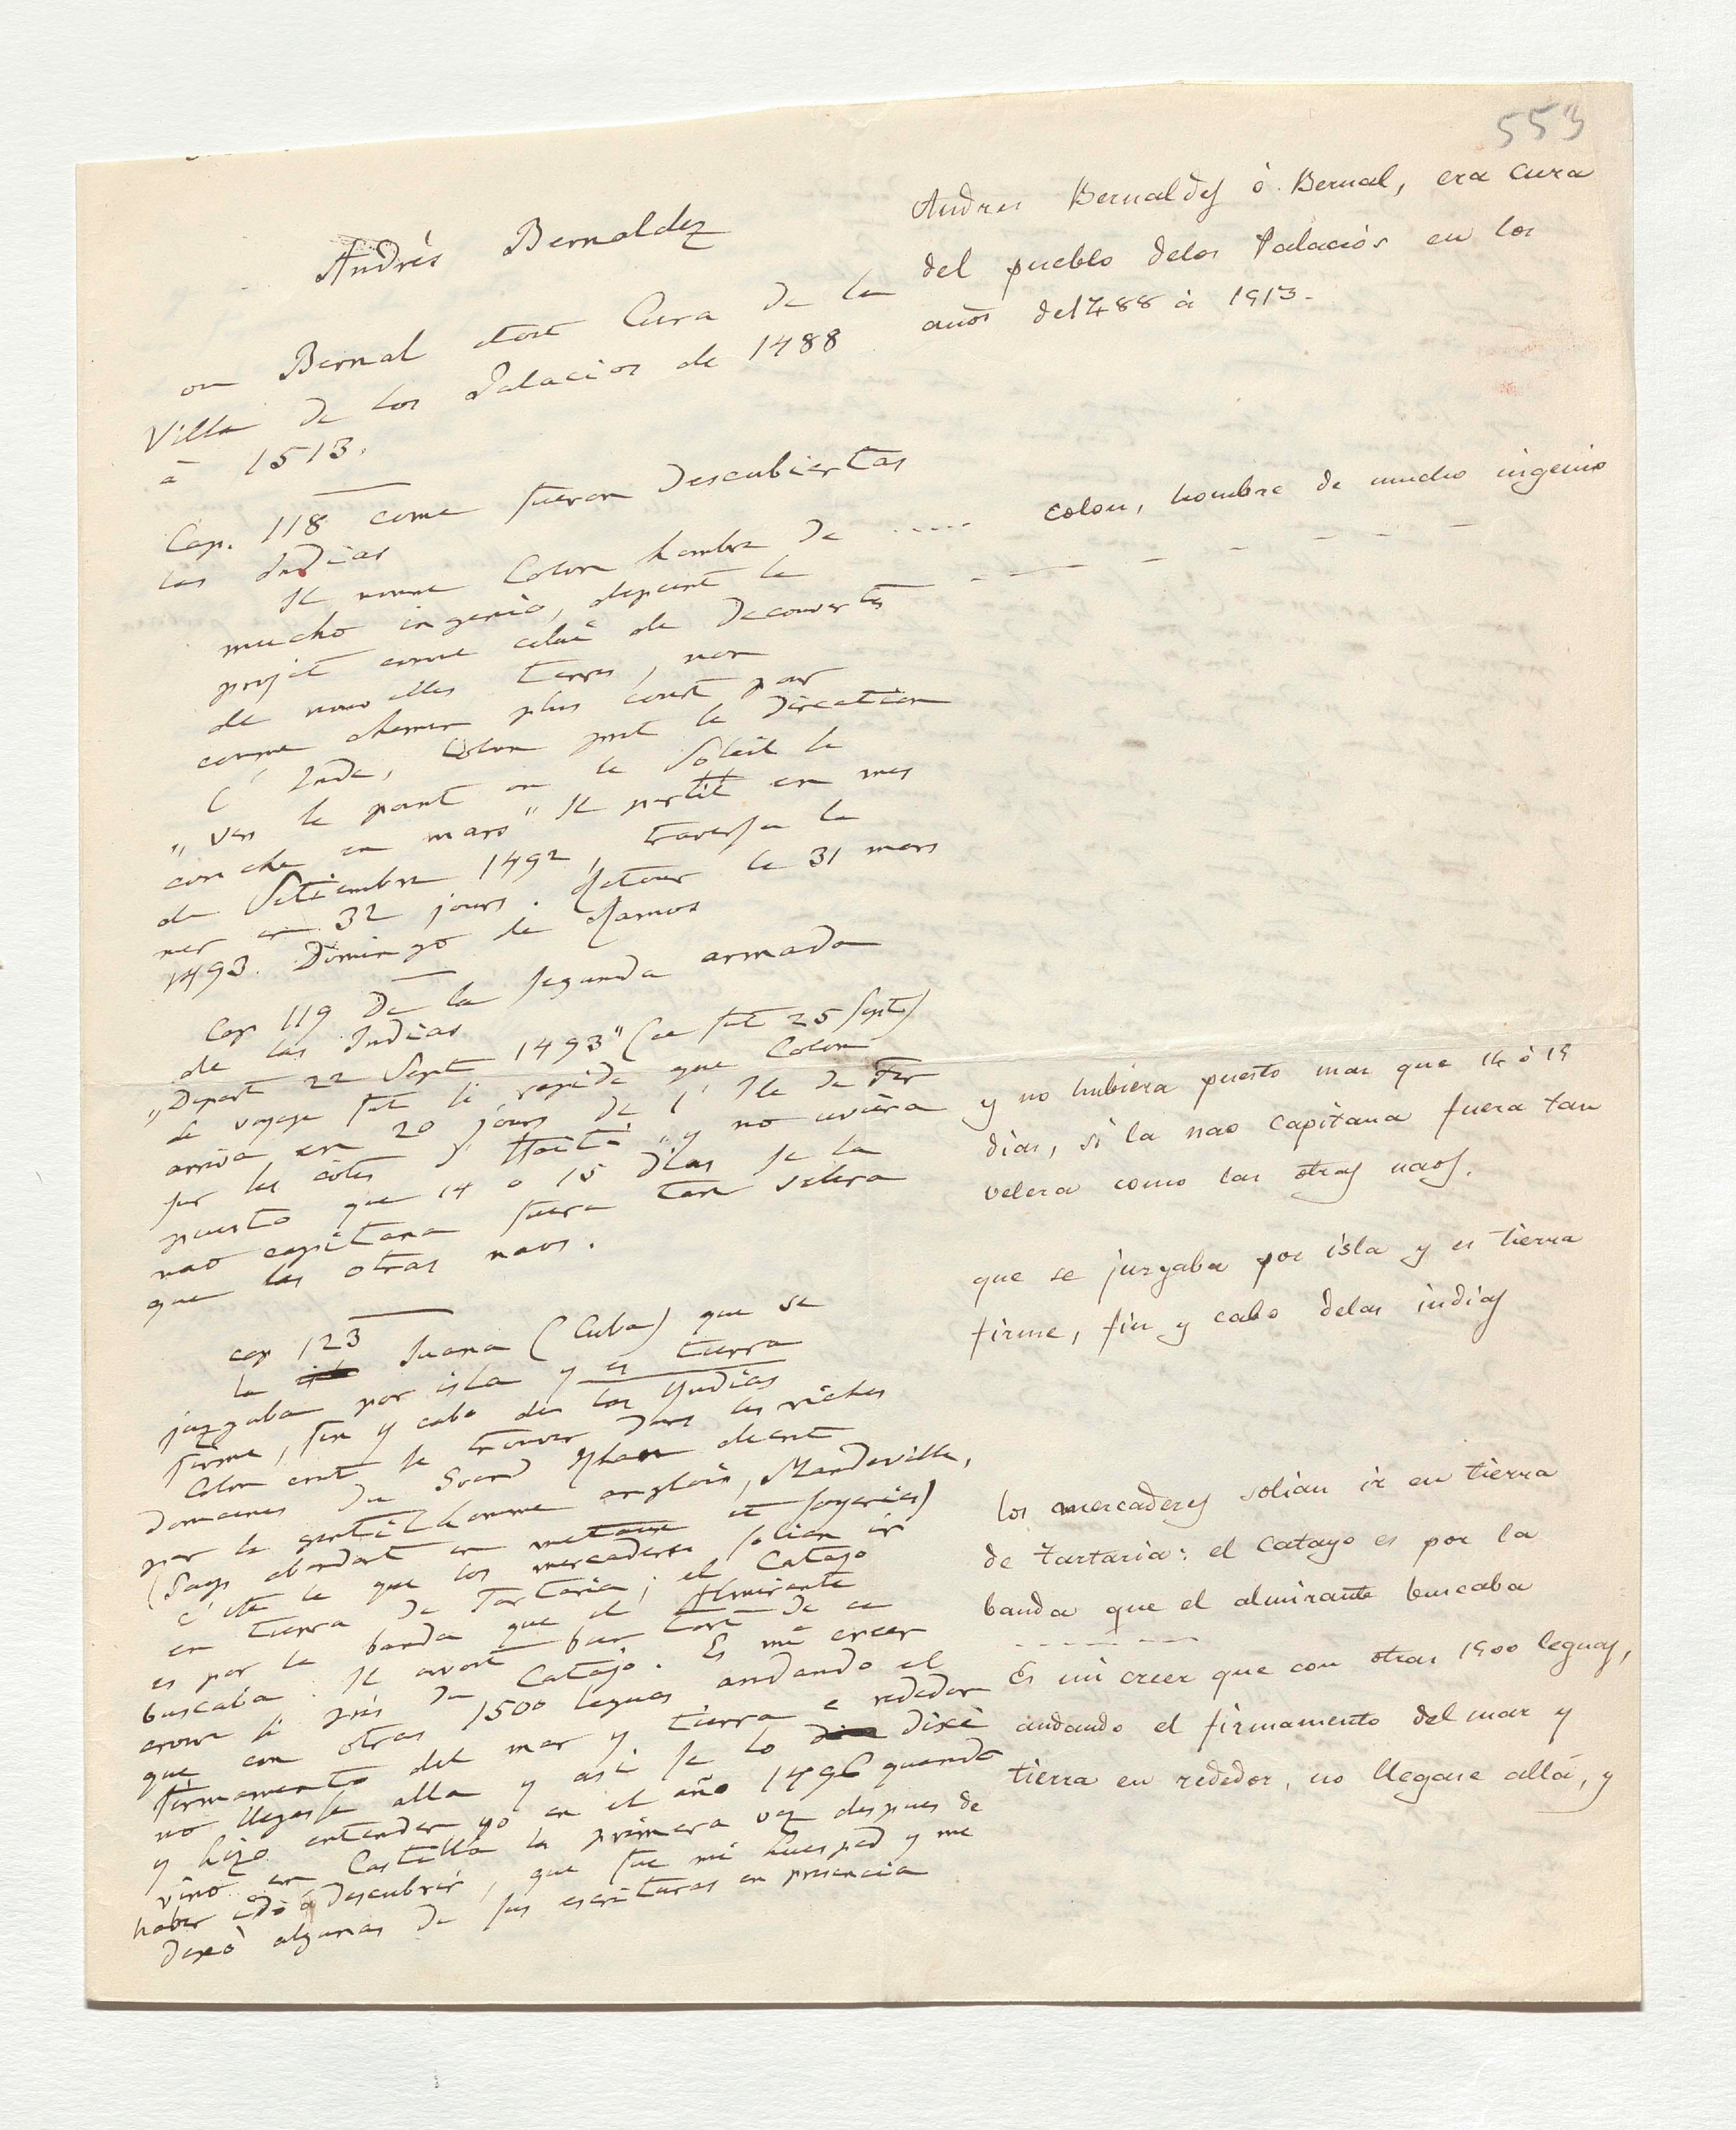 553
Andrés Bernaldez
ou Bernal etoit Cura de la
Villa de los Palacios de 1488
à 1513.
Cap. 118 como fueron descubiertas
las Indias
Il nomme Colon hombre de
mucho ingenio, depeint le
projet comme celui de decouvertes
de nouvelles terres, non
comme chemin plus court par
l'Inde, Colon prit la direction
"vers le point ou le Soleil se
couche en mars" Il partit en mes
de Setiembre 1492, traversa la
mer en 32 jours. Retour le 31 mars
1493. Domingo de Ramos
Cap 119 De la segunda armada
de las Indias
"Depart 22 Sept 1493" (ce fut 25 Sept)
le voyage fut si rapide que Colon
arriva en 20 jours de l'Ile de Fer
sur les cotes d'Haiti "y no uviera
puesto que 14 o 15 dias se la
nao capitana fuera tan velera
que las otras naos.
cap 123
la Juana (Cuba) que se
juzgaba por isla y es tierra
firme, fin y cabo de las Yndias
Colon crut se trouver dans les riches
domaines du Grand Khan decrit
par le gentilhomme anglois, Mandeville,
(Pays abondant en metaux et soyeries)
c'eté la que los mercaderes solian ir
en tierra de Tartaria; el Catayo
es por la banda que el Almirante
buscaba. Il avoit bien tort de se
croire si près du Catajo. Es mi creer
que con otras 1500 leguas andando el
firmamento del mar y tierra e rededor
no llegasse alla y asi se lo dixe
y hizo entender yo en el año 1496 quando
vino en Castilla la primera vez despues de
haber ido á descubrir, que fue mi huesped y me
dexò algunas de sus escrituras en presencia
Andres Bernaldes ò Bernal, era cura
del pueblo delos Palacios en los
años del488 à 1513.
..... colon, hombre de mucho ingenio
y no hubiera puesto mas que 14 ò 15
dias, si la nao capitana fuera tan
velera como las otras naos.
que se juzgaba por isla y es tierra
firme, fin y cabo delas indias
los mercaderes solian ir en tierra
de tartaria: el catayo es por la
banda que el almirante buscaba
Es mi creer que con otras 1500 leguas,
andando el firmamento del mar y
tierra en rededor, no llegase allá, y